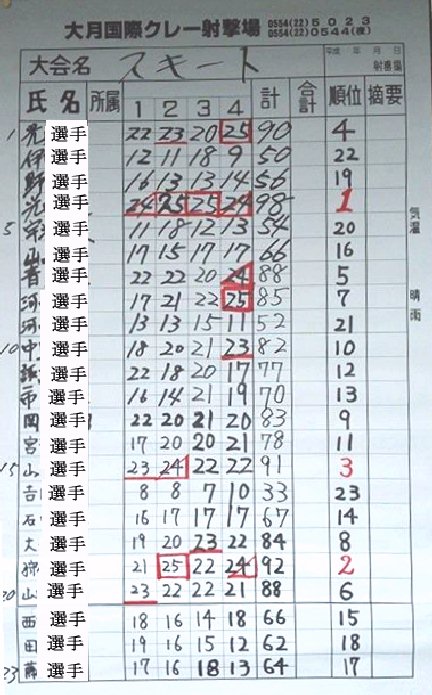 大月国際クレー射撃場 0554(22)5023
0554(22)0544(夜)
大会名 スキート 平成 年 月 日
射撃場
氏名 所属 1 2 3 4 計 合計 順位 摘要
1 選手 22 23 20 25 90 4
伊 選手 12 11 18 9 50 22
野 選手 16 13 13 14 56 19
光 選手 24 25 25 24 98 1
5 選手 11 18 12 13 54 20
山 選手 17 15 17 17 66 16
選手 22 22 20 24 88 5
河 選手 17 21 22 25 85 7
河 選手 13 13 15 11 52 21
10 中 選手 18 20 21 23 82 10
選手 22 18 20 17 77 12
市 選手 16 14 21 19 70 13
岡 選手 22 20 21 20 83 9
宮 選手 17 20 20 21 78 11
15 山 選手 23 24 22 22 91 3
吉 選手 8 8 7 10 33 23
石 選手 16 17 17 17 67 14
大 選手 19 20 23 22 84 8
選手 21 25 22 24 92 2
20 山 選手 23 22 22 21 88 6
西 選手 18 16 14 18 66 15
田 選手 19 16 15 12 62 18
23 藤 選手 17 16 18 13 64 17
気温
晴雨